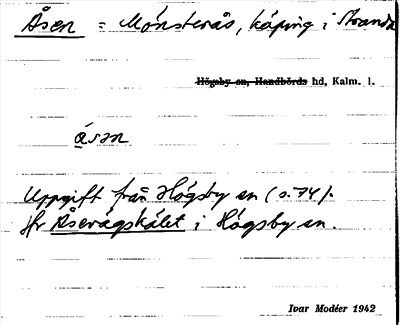 Åsen = Mönsterås, köping i Stranda
Högsby sn, Handbörds hd, Kalm. l.
åsən
Uppgift från Högsby sn (s. 74).
Jfr Åsevägskälet i Högsby sn.
Ivar Modéer 1942